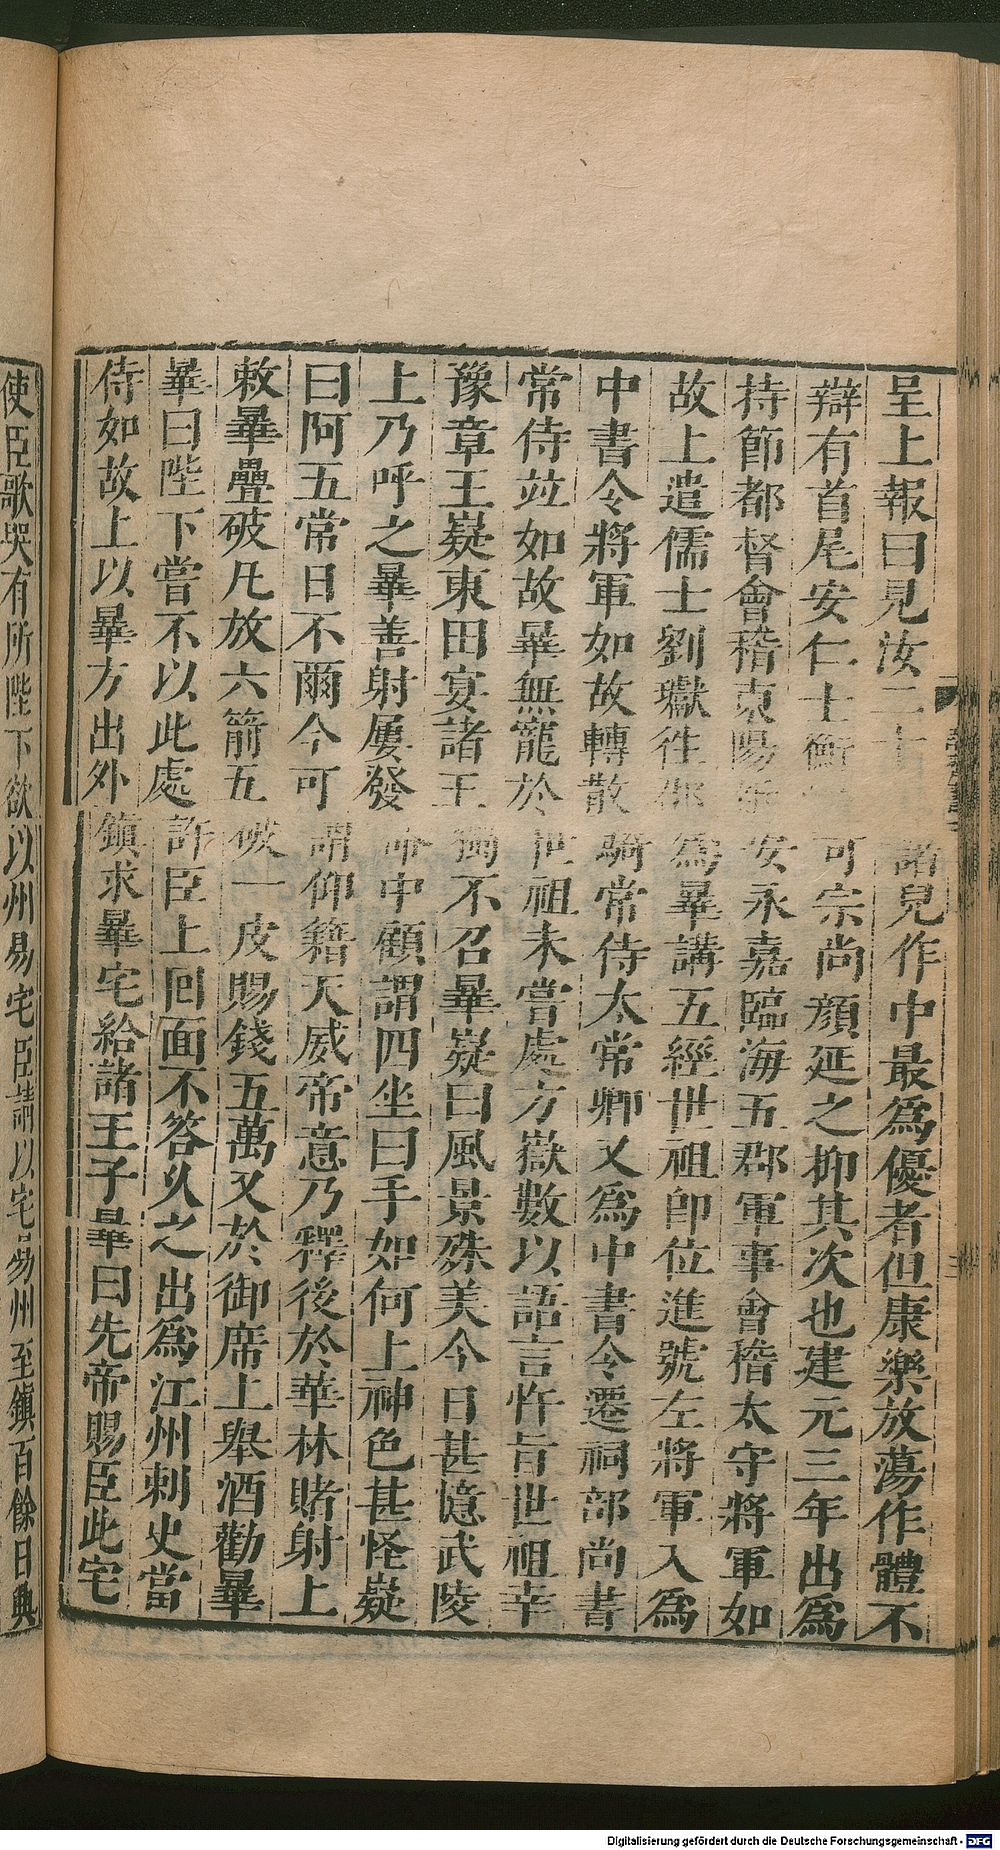 呈上報曰見汝二十諸兒作中最爲優者但康樂放蕩作體不
辯有首尾安仁士衡可宗尚顏延之抑其次也建元三年出爲
持節都督會稽東陽安永嘉臨海五郡軍事會稽太守將軍如
故上遣儒士劉瓛往爲畢講五經世祖卽位進號左將軍入爲
中書令將軍如故轉散騎常侍太常卿又爲中書令遷祠部尚書
常侍竝如故畢無寵於世祖未嘗處方嶽數以語言忤旨世祖幸
豫章王嶷東田宴諸王獨不召畢嶷曰風景殊美今日甚憶武陵
上乃呼之畢善射屢發命中顧謂四坐曰手如何上神色甚怪嶷
曰阿五常日不爾今可謂仰籍天威帝意乃釋後於華林賭射上
敕畢疊破凡放六箭五破一皮賜錢五萬又於御席上舉酒勸畢
畢曰陛下嘗不以此處許臣上回面不答久之出爲江州刺史當
侍如故上以畢方出外鎮求畢宅給諸王子畢曰先帝賜臣此宅
使臣歌哭有所陛下欲以州易宅臣請以宅易州至鎮百餘日典
Digitalisierung gefördert durch die Deutsche Forschungsgemeinschaft - DFG